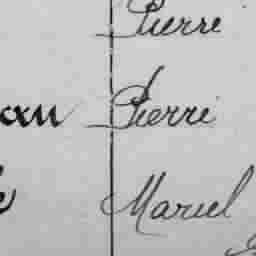 Pierre
Pierre
Marcel